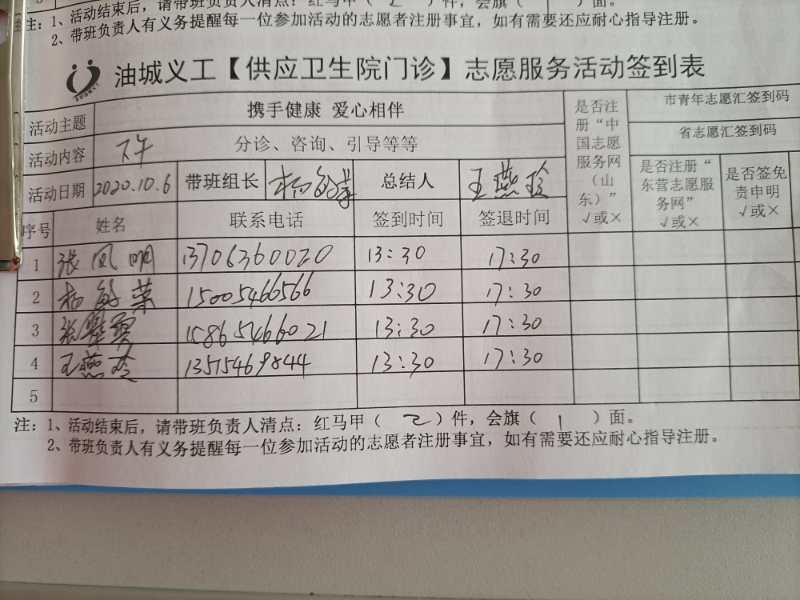 注：1、活动结束后，请带班负责人清点：红马甲（ 2 ）件，会旗（ 1 ）面。
2、带班负责人有义务提醒每一位参加活动的志愿者注册事宜，如有需要还应耐心指导注册。
油城义工【供应卫生院门诊】志愿服务活动签到表
活动主题 携手健康 爱心相伴 是否注册“中国志愿服务网（山东）”√或× 市青年志愿汇签到码
活动内容 下午 分诊、咨询、引导等等 省志愿汇签到码
活动日期 2020.10.6 带班组长 杨敏 总结人 王燕玲 是否注册“东营志愿服务网”√或× 是否签免责申明√或×
序号 姓名 联系电话 签到时间 签退时间
1 张凤明 13706360020 13:30 17:30
2 杨敏 15005460566 13:30 17:30
3 张 15865466021 13:30 17:30
4 王燕玲 13515469844 13:30 17:30
5
注：1、活动结束后，请带班负责人清点：红马甲（ 2 ）件，会旗（ 1 ）面。
2、带班负责人有义务提醒每一位参加活动的志愿者注册事宜，如有需要还应耐心指导注册。